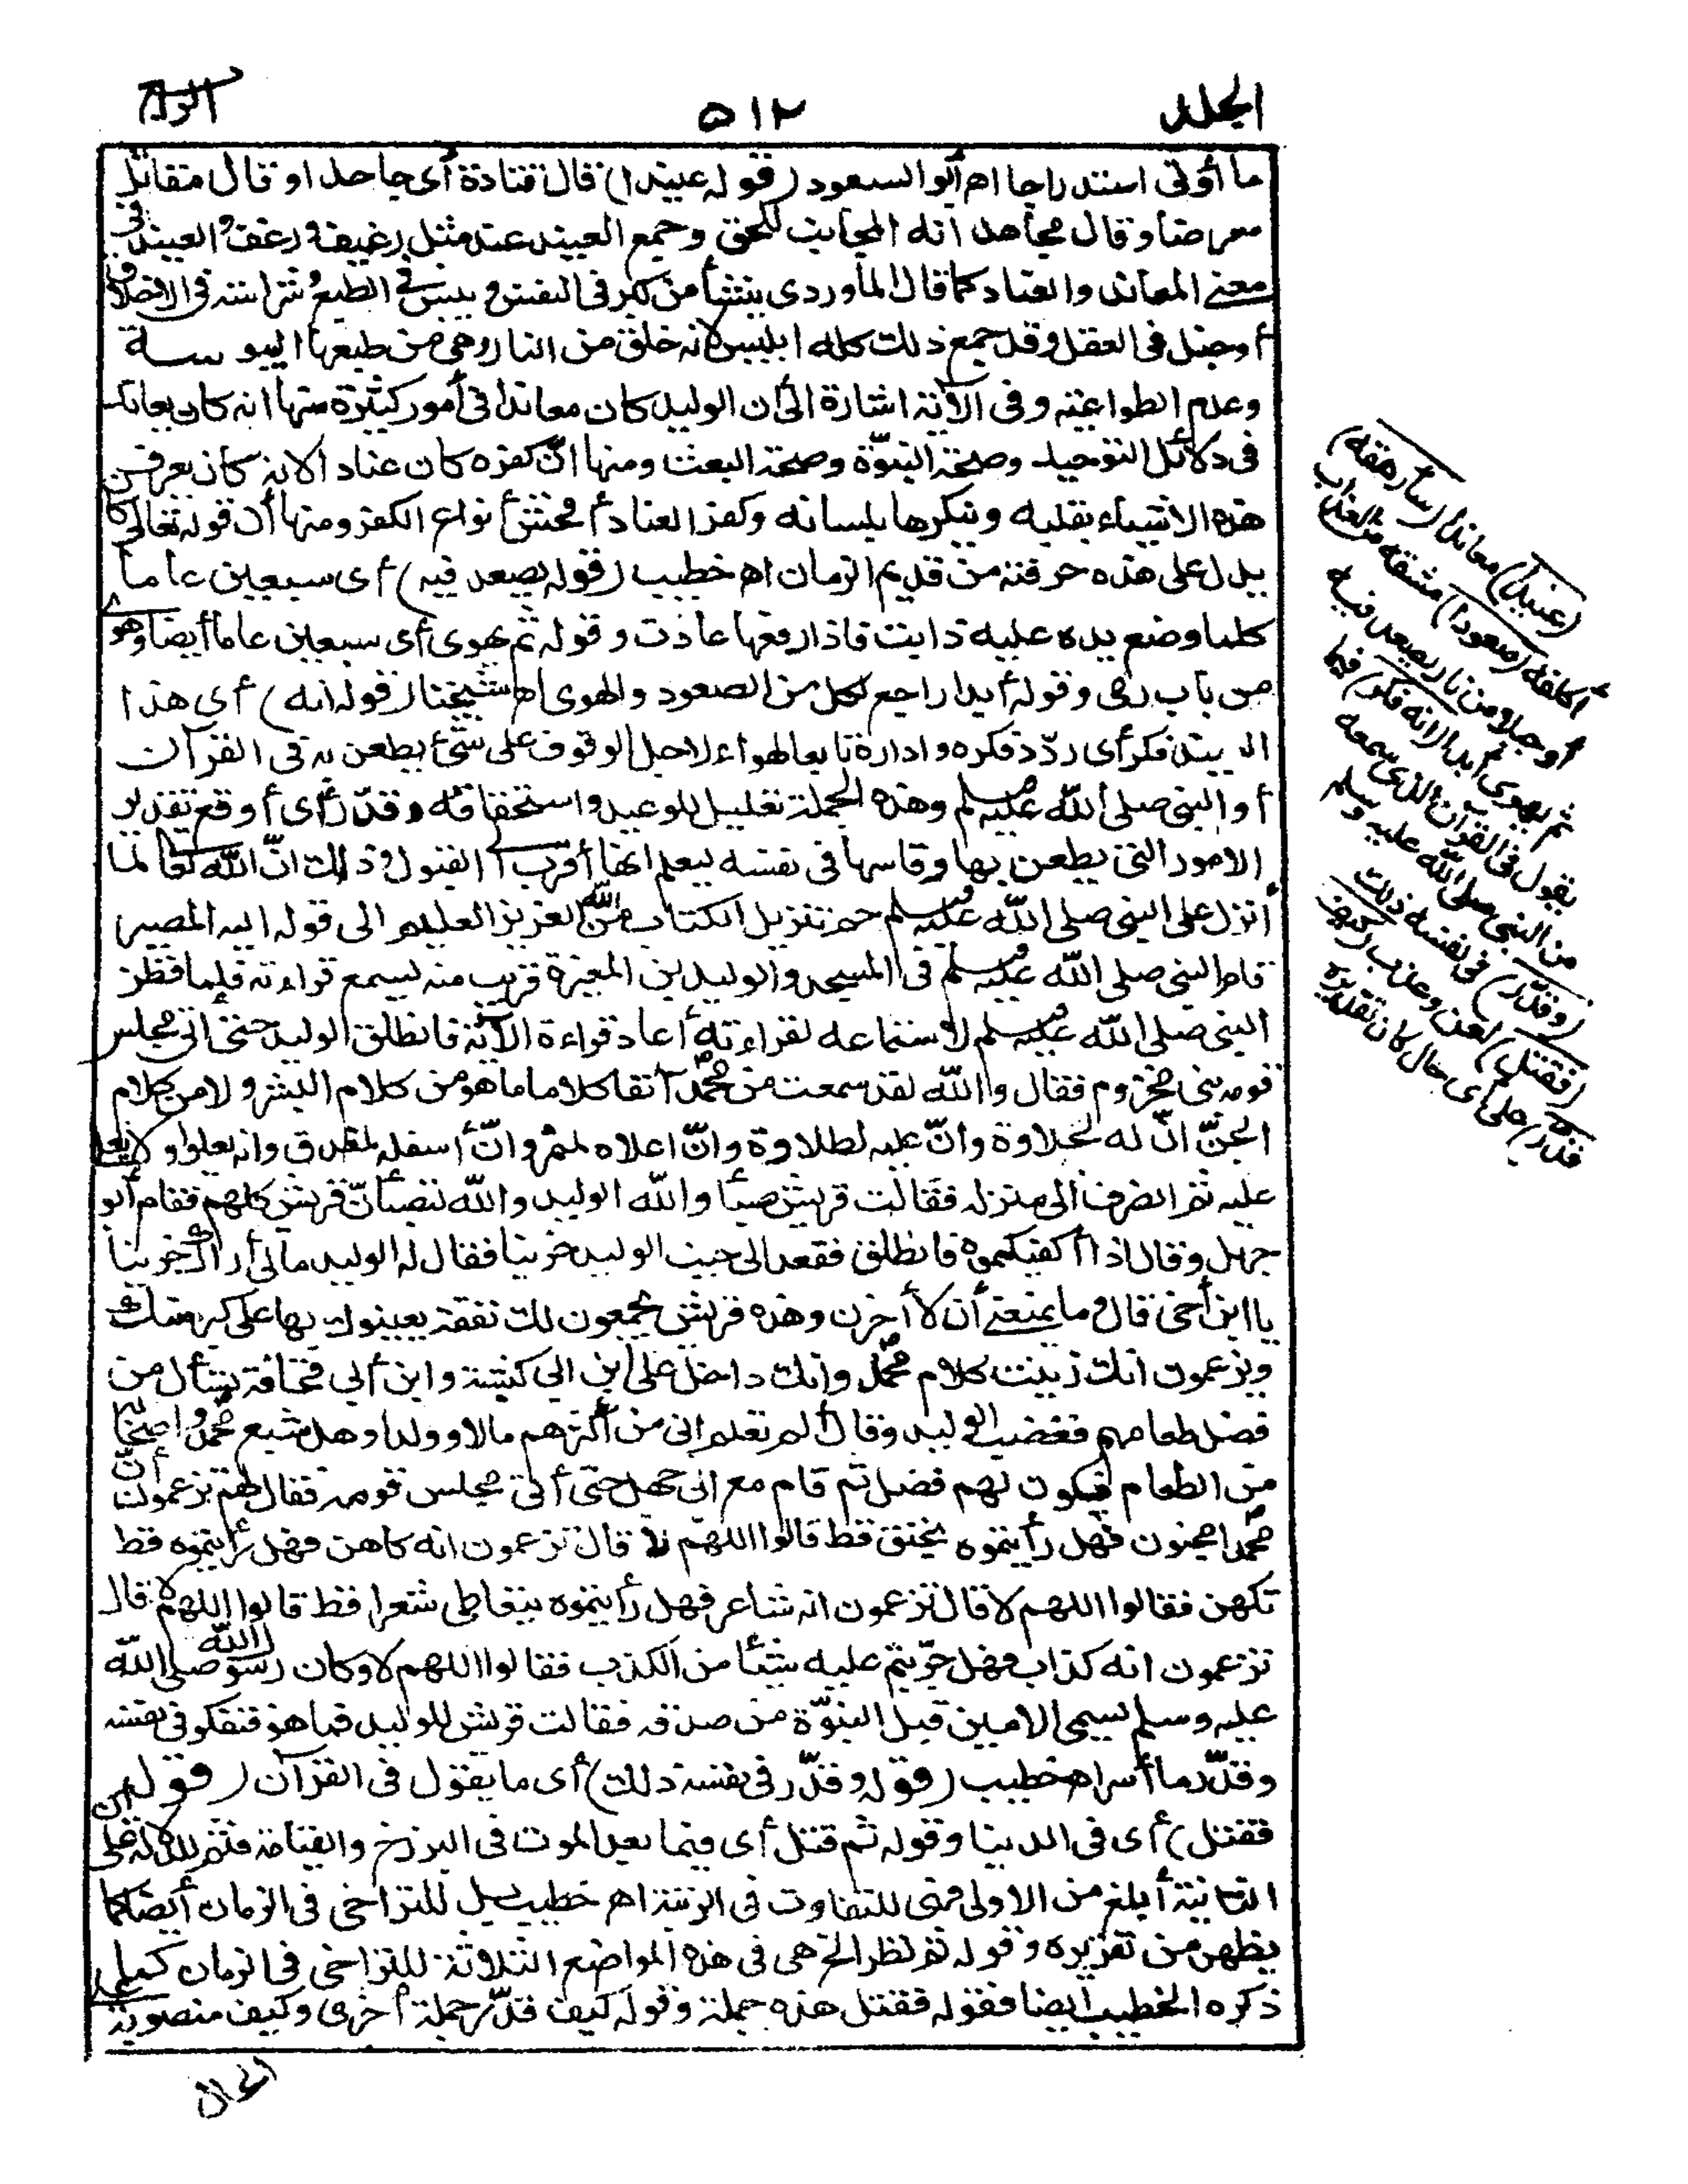 الجلد ٥١٢ الرابع
ما أوتى استدراجا اهـ أبو السعود (قوله عنيدا) قال قتادة أى جاحدا وقال مقاتل
معرضا وقال مجاهد انه المجانب للحق وجمع العنيد عند مثل رغيف ورغف والعنيد فى
معنى المعاند والعناد كما قال الماوردى ينشأ من كبر فى النفس ويبس فى الطبع وشراسة فى الاخلاق
أو خبل فى العقل وقد جمع ذلك كله ابليس لانه خلق من النار وهى من طبعها اليبوسة
وعدم الطواعية وفى الآية اشارة الى أن الوليد كان معاندا فى أمور كثيرة منها انه كان يعاند
فى دلائل التوحيد وصحة النبوّة وصحة البعث ومنها انّ كفره كان عنادا لانه كان يعرف
هذه الاشياء بقلبه وينكرها بلسانه وكفر العناد أفحش أنواع الكفر ومنها أن قوله تعالى كان
يدل على هذه حرفته من قديم الزمان اهـ خطيب (قوله يصعد فيه) أى سبعين عاما
كلما وضع يده عليه ذابت فاذا رفعها عادت وقوله ثم يهوى أى سبعين عاما أيضا وهو
من باب رمى وقوله أبدا راجع لكل من الصعود والهوى اهـ شيخنا (قوله انه) أى هذا
العنيد فكر أى ردّد فكره وادارة تابعا لهواه لاجل الوقوف على شئ يطعن به فى القرآن
أو النبى صلى الله عليه وسلم وهذه الجملة تعليل للوعيد واستحقاقه وقدّر أى أوقع تقدير
الامور التى يطعن بها وقاسها فى نفسه ليعلم انها أقرب الى القبول وذلك انّ الله تعالى لما
أنزل على النبى صلى الله عليه وسلم حم تنزيل الكتاب من الله العزيز العليم الى قوله اليه المصير
قام النبى صلى الله عليه وسلم فى المسجد والوليد بن المغيرة قريب منه يسمع قراءته فلما فطن
النبى صلى الله عليه وسلم لاستماعه لقراءته أعاد قراءة الآية فانطلق الوليد حتى أتى مجلس
قومه بنى مخزوم فقال والله لقد سمعت من محمد آنفا كلاما ما هو من كلام البشر ولا من كلام
الجنّ انّ له لحلاوة وانّ عليه لطلاوة وانّ اعلاه لمثمر وانّ أسفله لمغدق وانه يعلو ولا يعلى
عليه ثم انصرف الى منزله فقالت قريش صبأ والله الوليد والله لتصبأنّ قريش كلهم فقام أبو
جهل وقال اذا أكفيكموه فانطلق فقعد الى جنب الوليد حزينا فقال له الوليد مالى أراك حزينا
يا ابن أخى قال وما يمنعنى أن لا أحزن وهذه قريش يجمعون لك نفقة يعينوك بها على كبر سنك
ويزعمون انك زينت كلام محمد وانك داخل على ابن ابى كبشة وابن أبى قحافة تسأل من
فضل طعامهم فغضب الوليد وقال ألم تعلم انى من أكثرهم مالا وولدا وهل شبع محمد وأصحابه
من الطعام فيكون لهم فضل ثم قام مع ابى جهل حتى أتى مجلس قومه فقال لهم تزعمون أنّ
محمدا مجنون فهل رأيتموه يخنق قط قالوا اللهم لا قال تزعمون انه كاهن فهل رأيتموه قط
تكهن فقالوا اللهم لا قال تزعمون انه شاعر فهل رأيتموه يتعاطى شعرا قط قالوا اللهم لا قال
تزعمون انه كذاب فهل جرّبتم عليه شيئا من الكذب فقالوا اللهم لا وكان رسول الله صلى الله
عليه وسلم يسمى الامين قبل النبوّة من صدقه فقالت قريش للوليد فما هو فتفكر فى نفسه
وقدّر ما أسر اهـ خطيب (قوله وقدّر فى نفسه ذلك) أى ما يقول فى القرآن (قوله
فقتل) أى فى الدنيا وقوله ثم قتل أى فيما بعد الموت فى البرزخ والقيامة فثم للدلالة على أن
الثانية أبلغ من الاولى فهى للتفاوت فى الرتبة اهـ خطيب بل للتراخى فى الزمان أيضا كما
يظهر من تقريره وقوله ثم نظر الخ هى فى هذه المواضع الثلاثة للتراخى فى الزمان كما
ذكره الخطيب أيضا فقوله فقتل هذه جملة وقوله كيف قدّر جملة أخرى وكيف منصوبة
الحال
(عنيدا) معاندا (سأرهقه)
أكلفه (صعودا) مشقة من العذاب
أو جبلا من نار يصعد فيه
ثم يهوى أبدا (انه فكر) فيما
يقول فى القرآن الذى سمعه
من النبى صلى الله عليه وسلم
(وقدّر) فى نفسه ذلك
(فقتل) لعن وعذب (كيف
قدّر) على أى حال كان تقديره